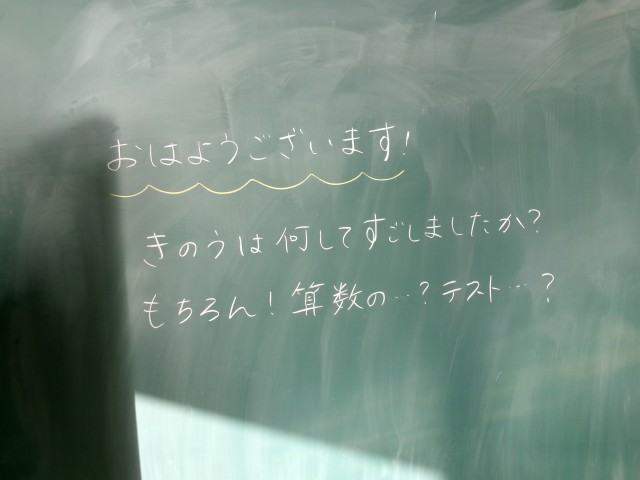 おはようございます!
きのうは何してすごしましたか?
もちろん!算数の…?テスト…?